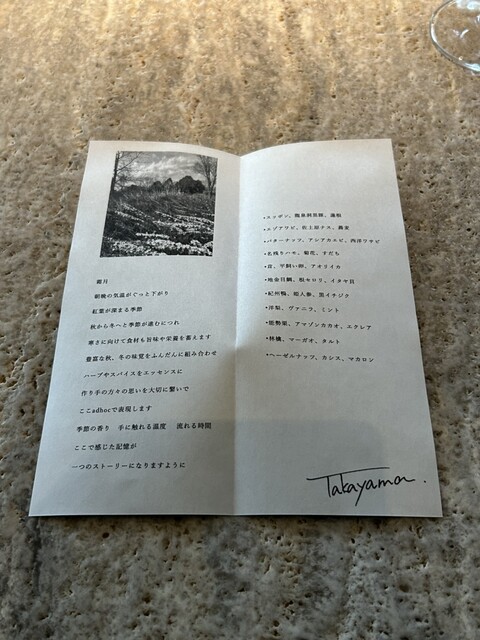 霜月
朝晩の気温がぐっと下がり
紅葉が深まる季節
秋から冬へと季節が進むにつれ
寒さに向けて食材も旨味や栄養を蓄えます
豊富な秋、冬の味覚をふんだんに組み合わせ
ハーブやスパイスをエッセンスに
作り手の方々の思いを大切に繋いで
ここadhocで表現します
季節の香り 手に触れる温度 流れる時間
ここで感じた記憶が
一つのストーリーになりますように
・スッポン、龍泉洞黒豚、蓮根
・エゾアワビ、佐土原ナス、蕎麦
・バターナッツ、アシアカエビ、西洋ワサビ
・名残りハモ、菊花、すだち
・平飼い卵、アオリイカ
・地金目鯛、根セロリ、イタヤ貝
・紀州鴨、姫人参、黒イチジク
・洋梨、ヴァニラ、ミント
・能勢栗、アマゾンカカオ、エクレア
・林檎、マーガオ、タルト
・ヘーゼルナッツ、カシス、マカロン
Takayama.